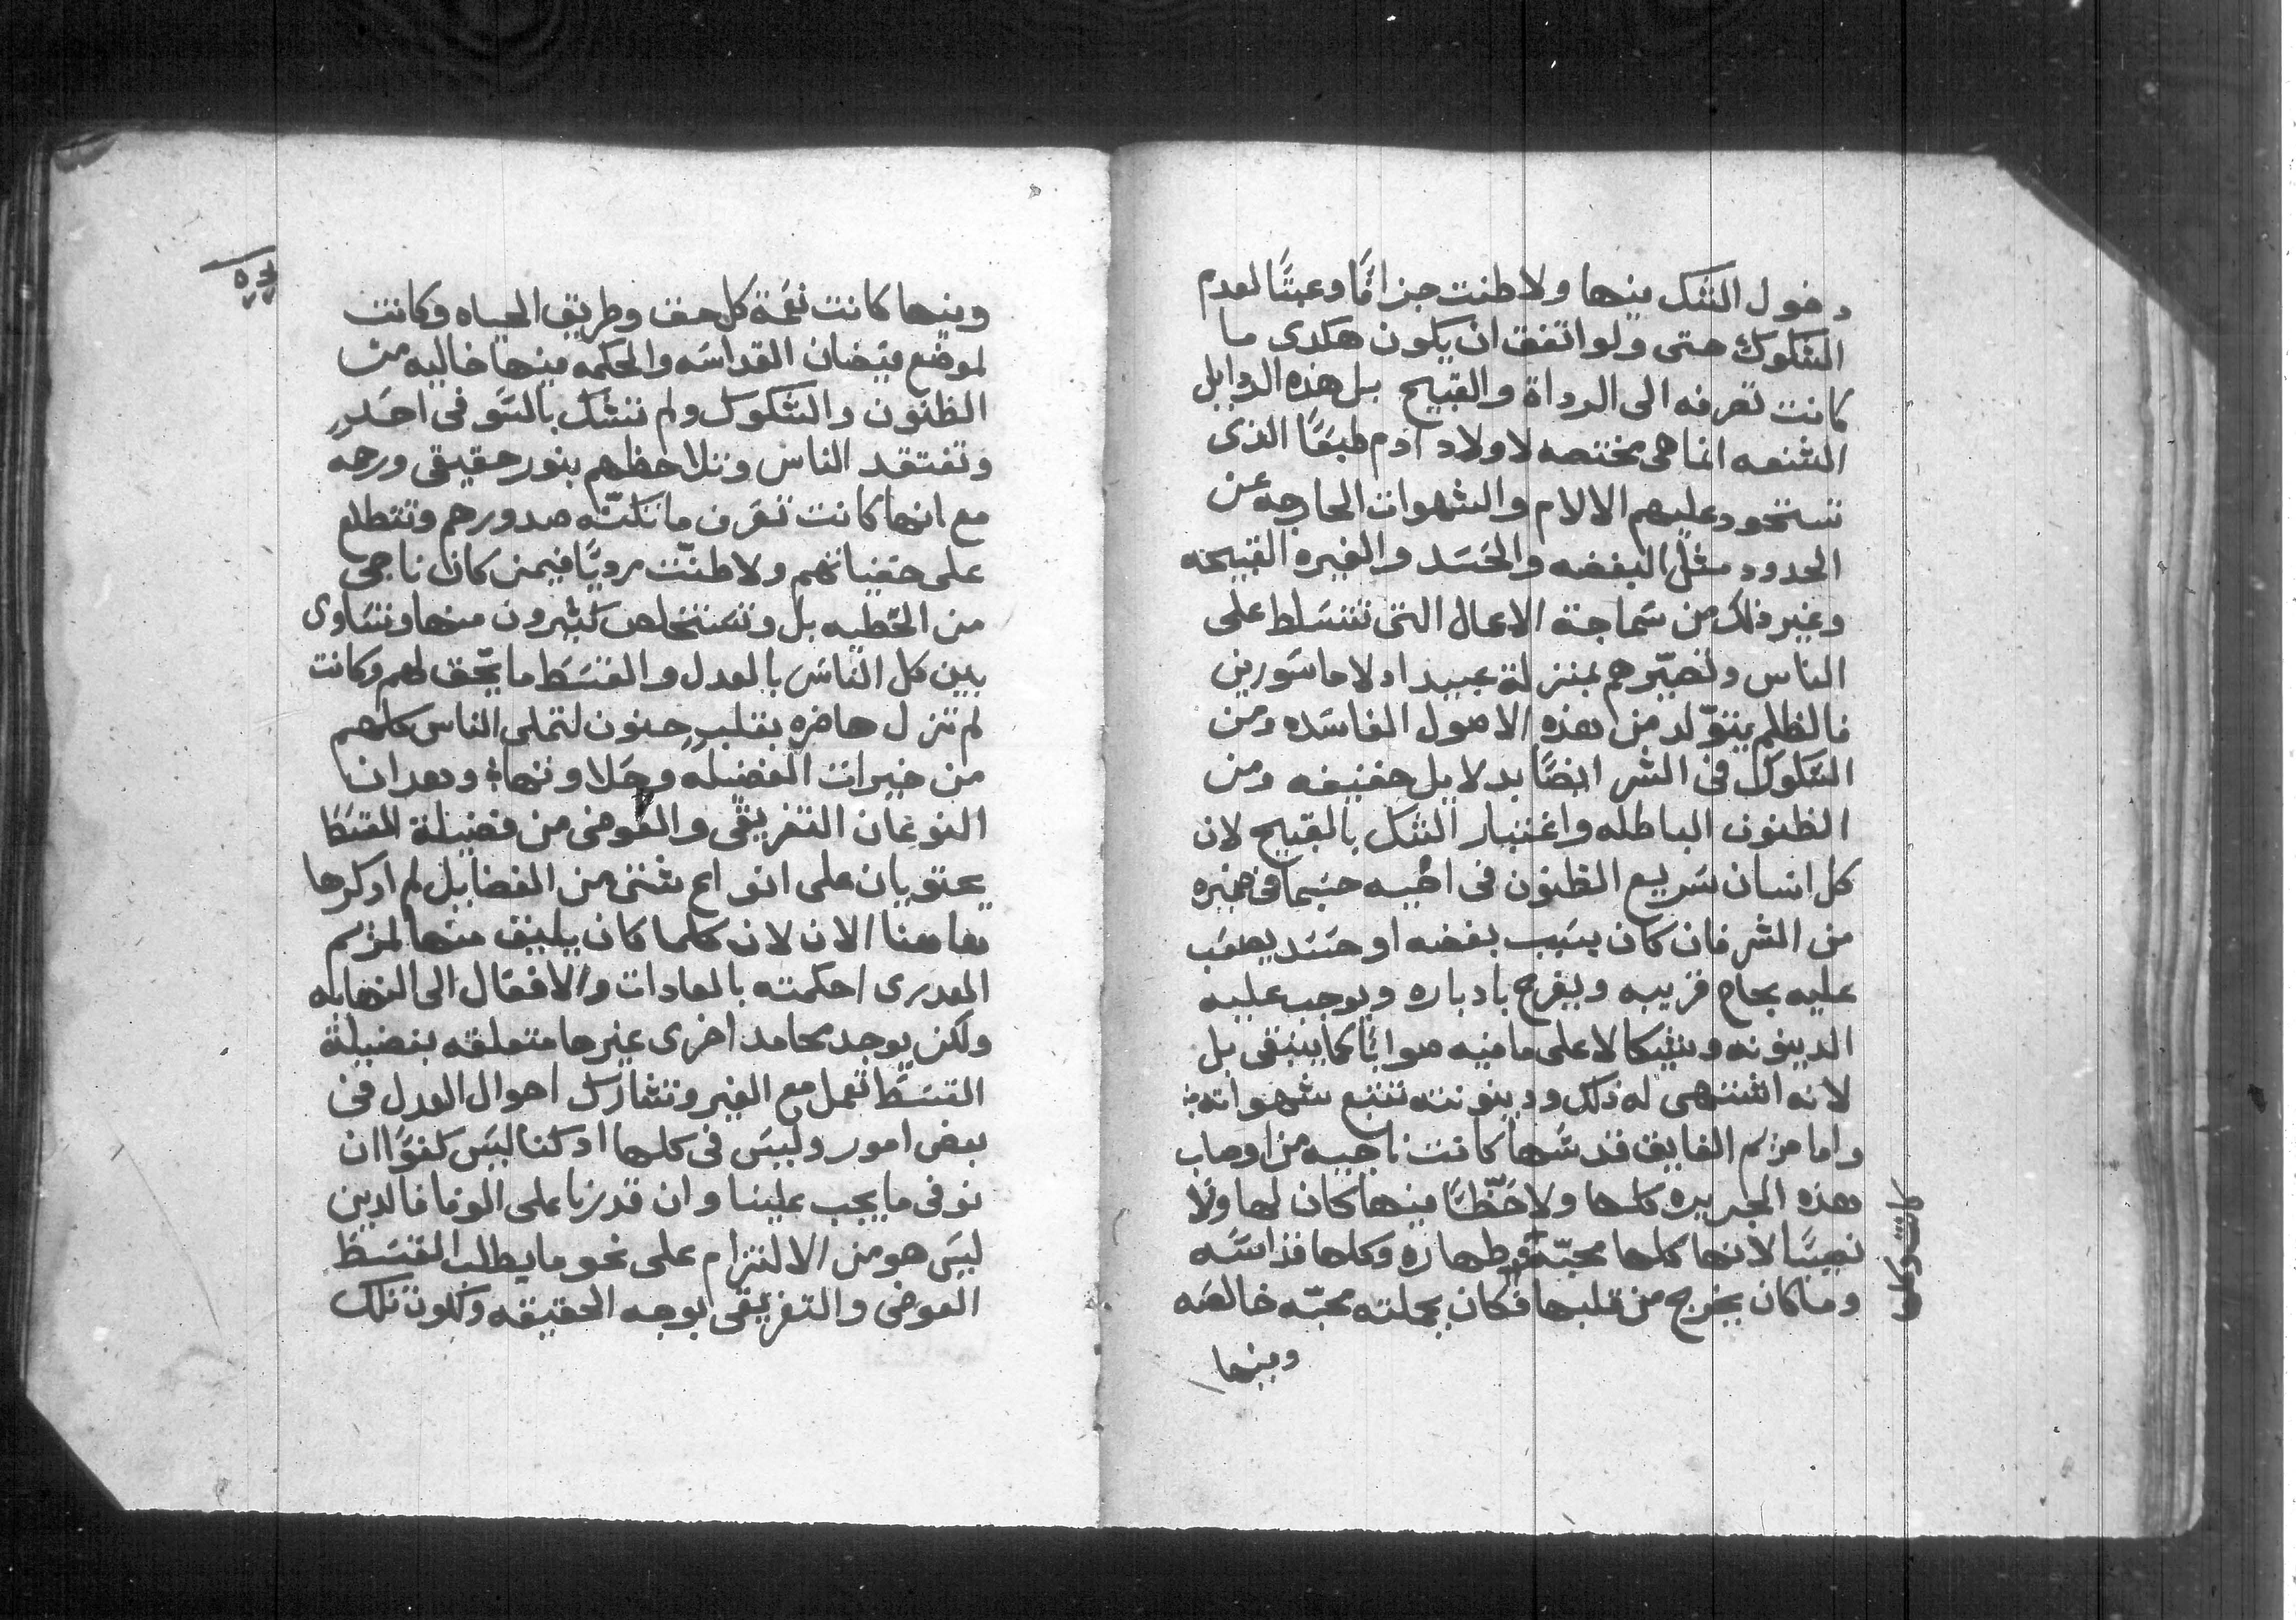 دخول الشك فيها ولا ظنت جزافًا وعبثًا لعدم
الشكوك حتى ولو اتفق ان يكون هكدى ما
كانت تعرفه الى الرداة والقبيح بل هذه الردايل
الشنعه انما هى مختصه لاولاد ادم طبعًا الذى
تستحود عليهم الالام والشهوات الخارجه عن
الحدود مثل البغضه والحسد والغيره القبيحه
وغير ذلك من سماجة الاعمال التى تتسلط على
الناس وتصيّرهم بمنزلة عبيد اولا ماسورين
فالظلم يتوّلد من هذه الاصول الفاسده ومن
الشكوك فى الشر ايضًا بدلايل خفيفه ومن
الظنون الباطله واعتبار الشك بالقبيح لان
كل انسان سريع الظنون فى اخيه حتيما فى ضميره
من الشر فان كان بسبب بغضه او حسد يصعب
عليه نجاح قريبه ويفرح بادباره ويوجب عليه
الدينونه وشيكا لا على ما فيه صوابًا كما ينبغى بل
لانه اشتهى له ذلك ودينونته تتبع شهواته
واما مريم الفايق قدسها كانت ناجيه من اوصاب
هذه الجريره كلها ولا حّظًا فيها كان لها ولا
نصيبًا لانها كلها محبّه وطهاره وكلها قداسه
وما كان يخرج من قلبها فكان بجملته محبّه خالصه
كانت وكلها
وفيها
وفيها كانت نعمة كل حق وطريق الحياه وكانت
لموضع فيضان القداسه والحكمه فيها خاليه من
الظنون والشكوك ولم تشك بالسّو فى احدٍ
وتفتقد الناس وتلاحظهم بنور حقيقى ورحمه
مع انها كانت تعرف ما تكنّه صدورهم وتتطلع
على خفياتهم ولا ظنّت رديًا فيمن كان ناجى
من الخطيه بل وتستخلص كثيرون منها وتساوى
بين كل الناس بالعدل والقسط ما يحّق لهم وكانت
لم تزل حاضره بقلبٍ حنون لتملى الناس كلهم
من خيرات الفضيله وحلاوتها وبعد ان
النوعان التفريقى والعوضى من فضيلة القسط
يحتويان على انواع شتى من الفضايل لم ادكرها
هاهنا الان لان كلما كان يليق منها لمريم
العدرى احكمته بالعادات والافعال الى النهايه
ولكن يوجد محامد اخرى غيرها متعلقه بفضيلة
القسط تعمل مع الغير وتشارك احوال العدل فى
بعض امور وليس فى كلها ادكنا ليس كفوًا ان
نوفى ما يجب علينا وان قدرنا على الوفا فالدين
ليس هو من الالتزام على نحو ما يطلب القسط
العوضى والتفريقى بوجه الحقيقه وكون تلك